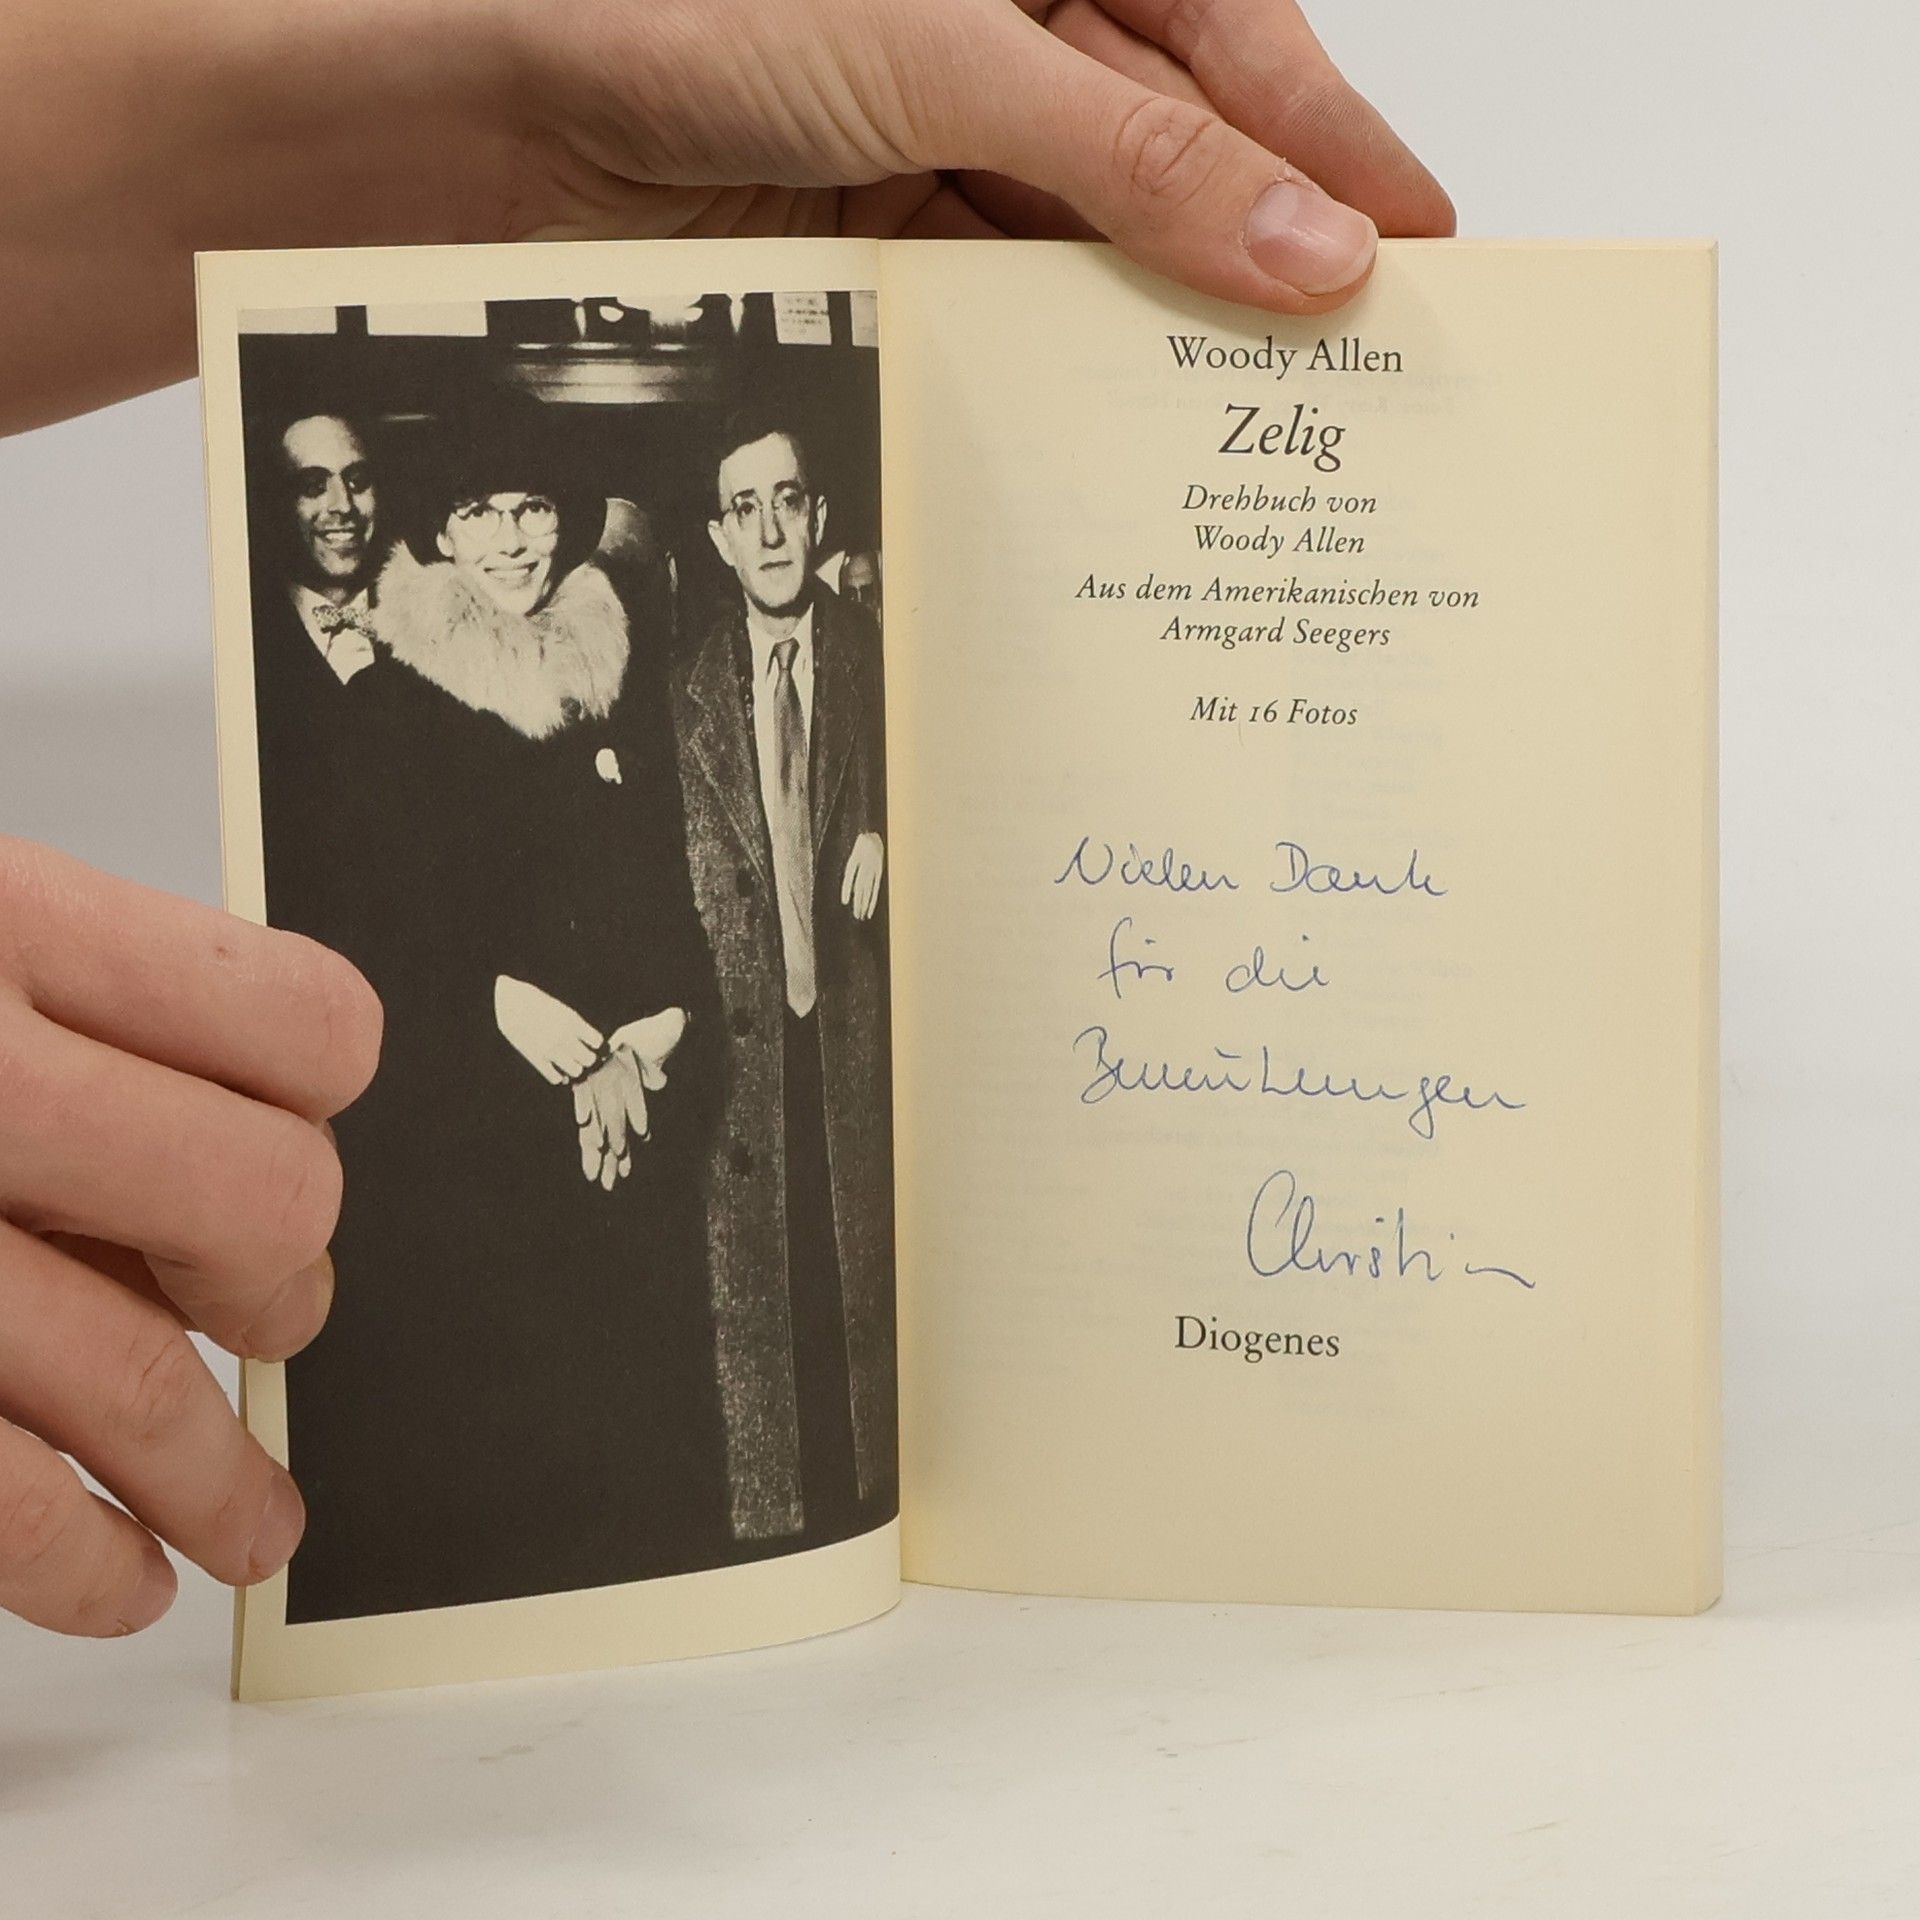 Woody Allen
Zelig
Drehbuch von
Woody Allen
Aus dem Amerikanischen von
Armgard Seegers
Mit 16 Fotos
Vielen Dank
für die
Bemühungen
Christian
Diogenes